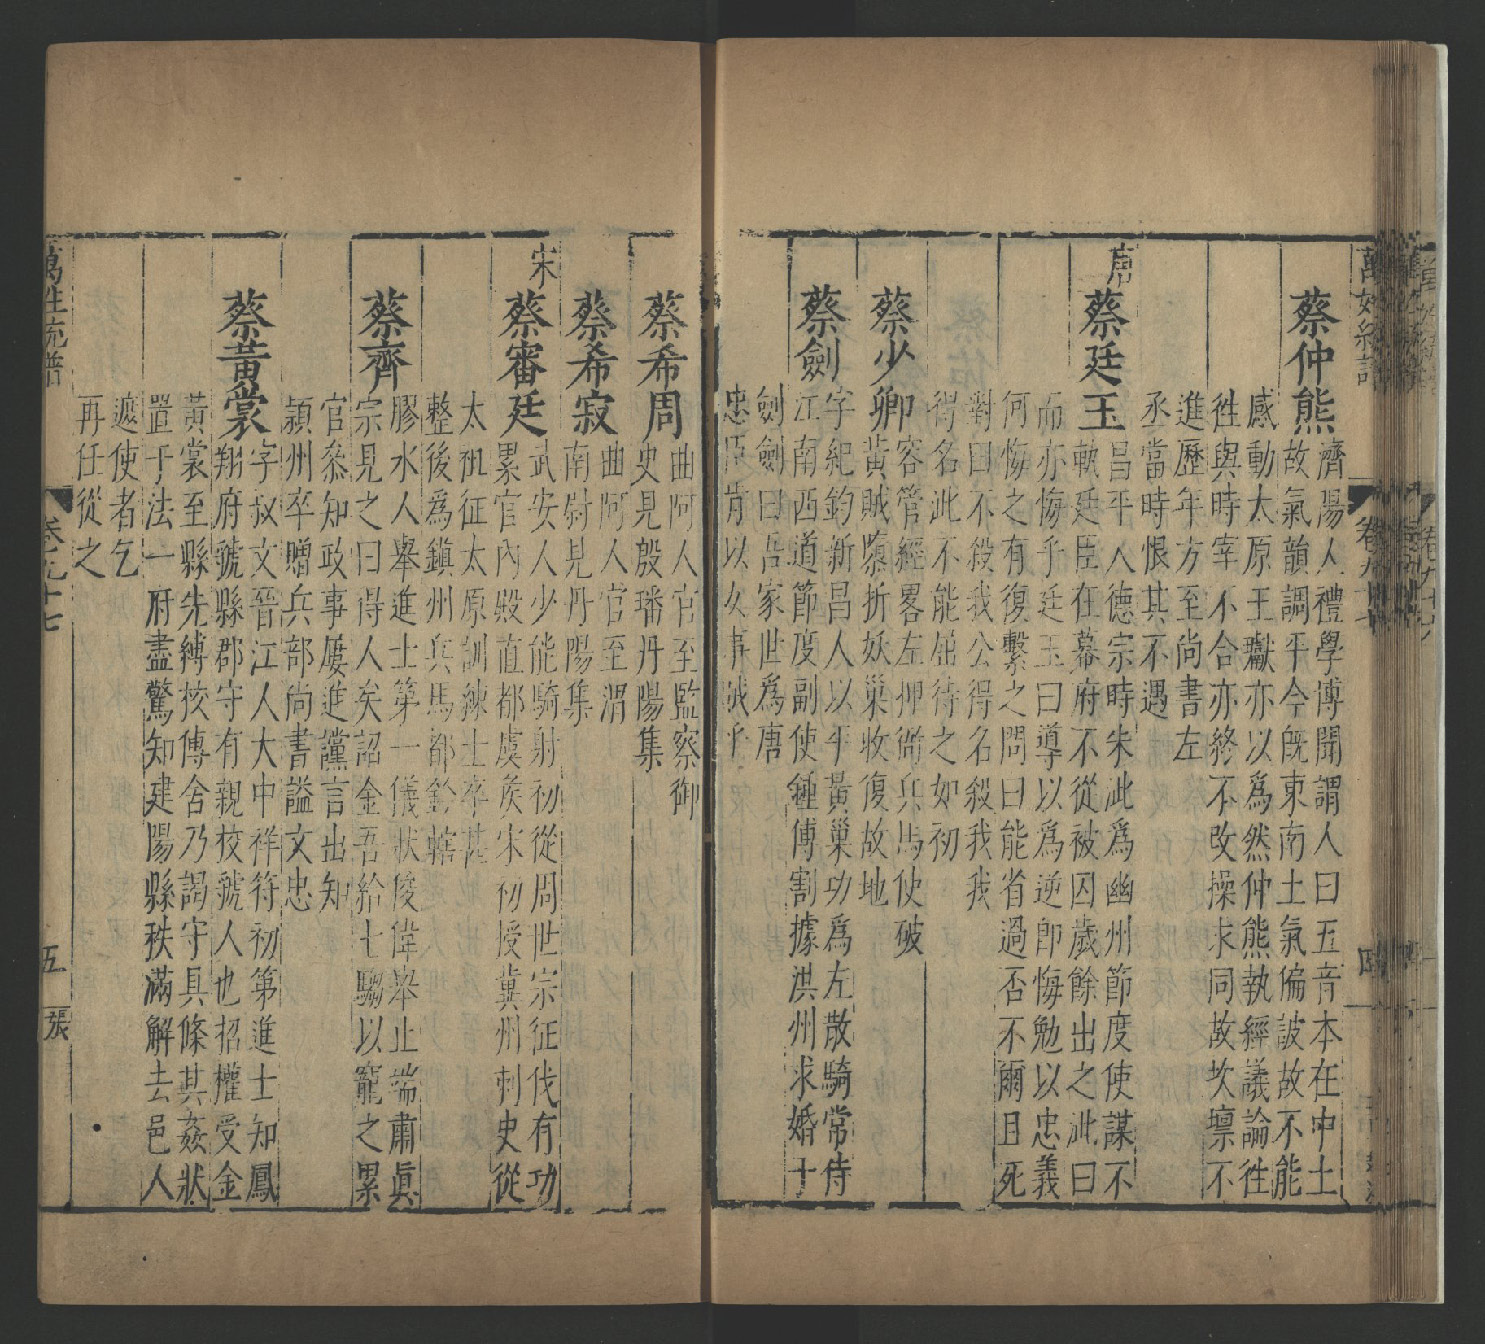 蔡仲熊
濟陽人禮學博聞謂人曰五音本在中土
故氣韻調平今旣東南土氣偏詖故不能
感動太原王瓛亦以爲然仲熊執經議論徃
徃與時宰不合亦終不改操求同故坎壈不
進歷年方至尚書左
丞當時恨其不遇
唐
蔡廷玉
昌平人德宗時朱泚爲幽州節度使謀不
軌廷臣在幕府不從被囚歲餘出之泚曰
而亦悔乎廷玉曰導以爲逆卽悔勉以忠義
何悔之有復繫之問曰能省過否不爾且死
對曰不殺我公得名殺我我
得名此不能屈待之如初
蔡少卿
容管經畧左押衙兵馬使破
黃賊隳折妖巢收復故地
蔡劍
字紀鈞新昌人以平黃巢功爲左散騎常侍
江南西道節度副使鍾傅割據洪州求婚于
劍劍曰吾家世爲唐
忠臣肯以女事賊乎
蔡希周
曲阿人官至監察御
史見殷璠丹陽集
蔡希寂
曲阿人官至渭
南尉見丹陽集
宋
蔡審廷
武安人少能騎射初從周世宗征伐有功
累官內殿直都虞矦宋初授冀州刺史從
太祖征太原訓練士卒甚
整後爲鎮州兵馬都鈐轄
蔡齊
膠水人舉進士第一儀狀俊偉舉止端肅眞
宗見之曰得人矣詔金吾給七騶以寵之累
官叅知政事屢進讜言出知
潁州卒贈兵部尚書謚文忠
蔡黃裳
字叔文晉江人大中祥符初第進士知鳳
翔府虢縣郡守有親挍虢人也招權受金
黃裳至縣先縛挍傳舍乃謁守具條其姦狀
置于法一府盡驚知建陽縣秩滿解去邑人
遮使者乞
再任從之
萬姓統譜
卷之九十七
五
張